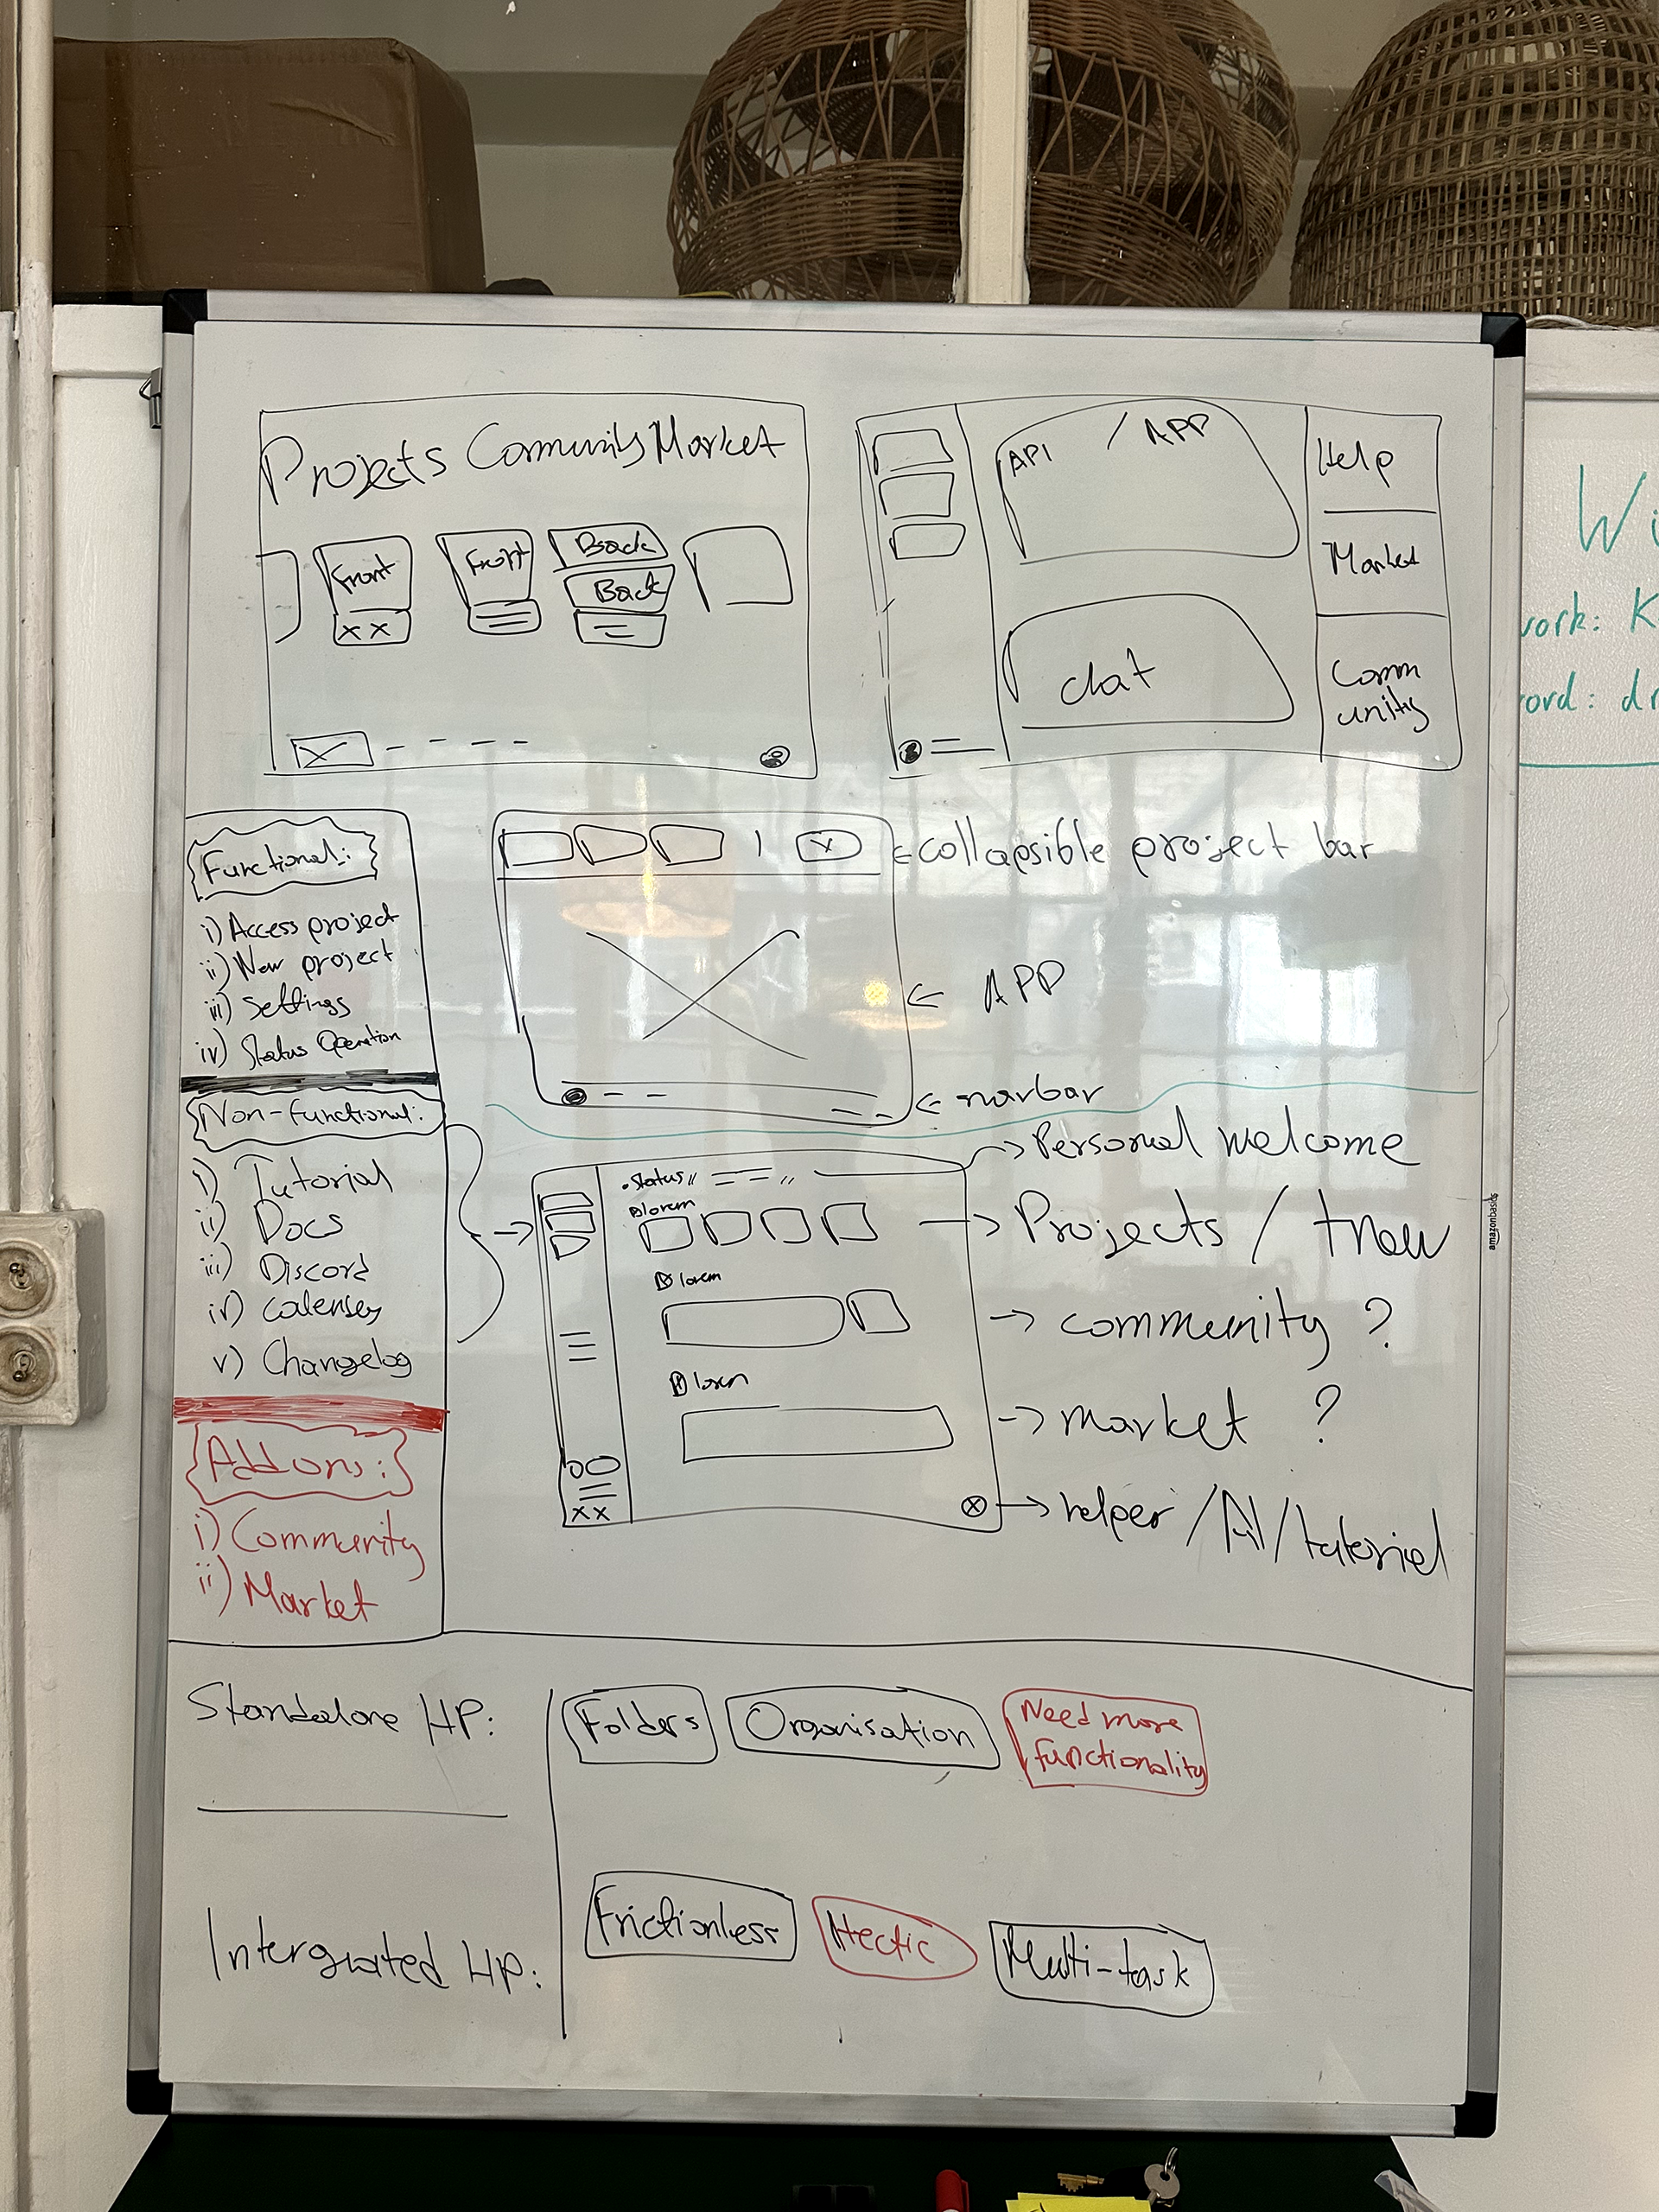 Projects Community Market
Front
XX
Front
Back
Back
X
API / APP
chat
Help
Market
Comm
unity
Wi
work: K
ord: dr
Functional:
i) Access project
ii) New project
iii) Settings
iv) Status Operation
Non-functional:
i) Tutorial
ii) Docs
iii) Discord
iv)
v) Changelog
Addons:
i) Community
ii) Market
x
<- collapsible project bar
<- APP
<- navbar
.Status
lorem
lorem
lorem
XX
-> Personal welcome
-> Projects / +new
-> community ?
-> market ?
-> helper / AI / tutorial
amazonbasics
Standalone HP:
Folders
Organisation
Need more
functionality
Intergrated HP:
Frictionless
Hectic
Multi-task